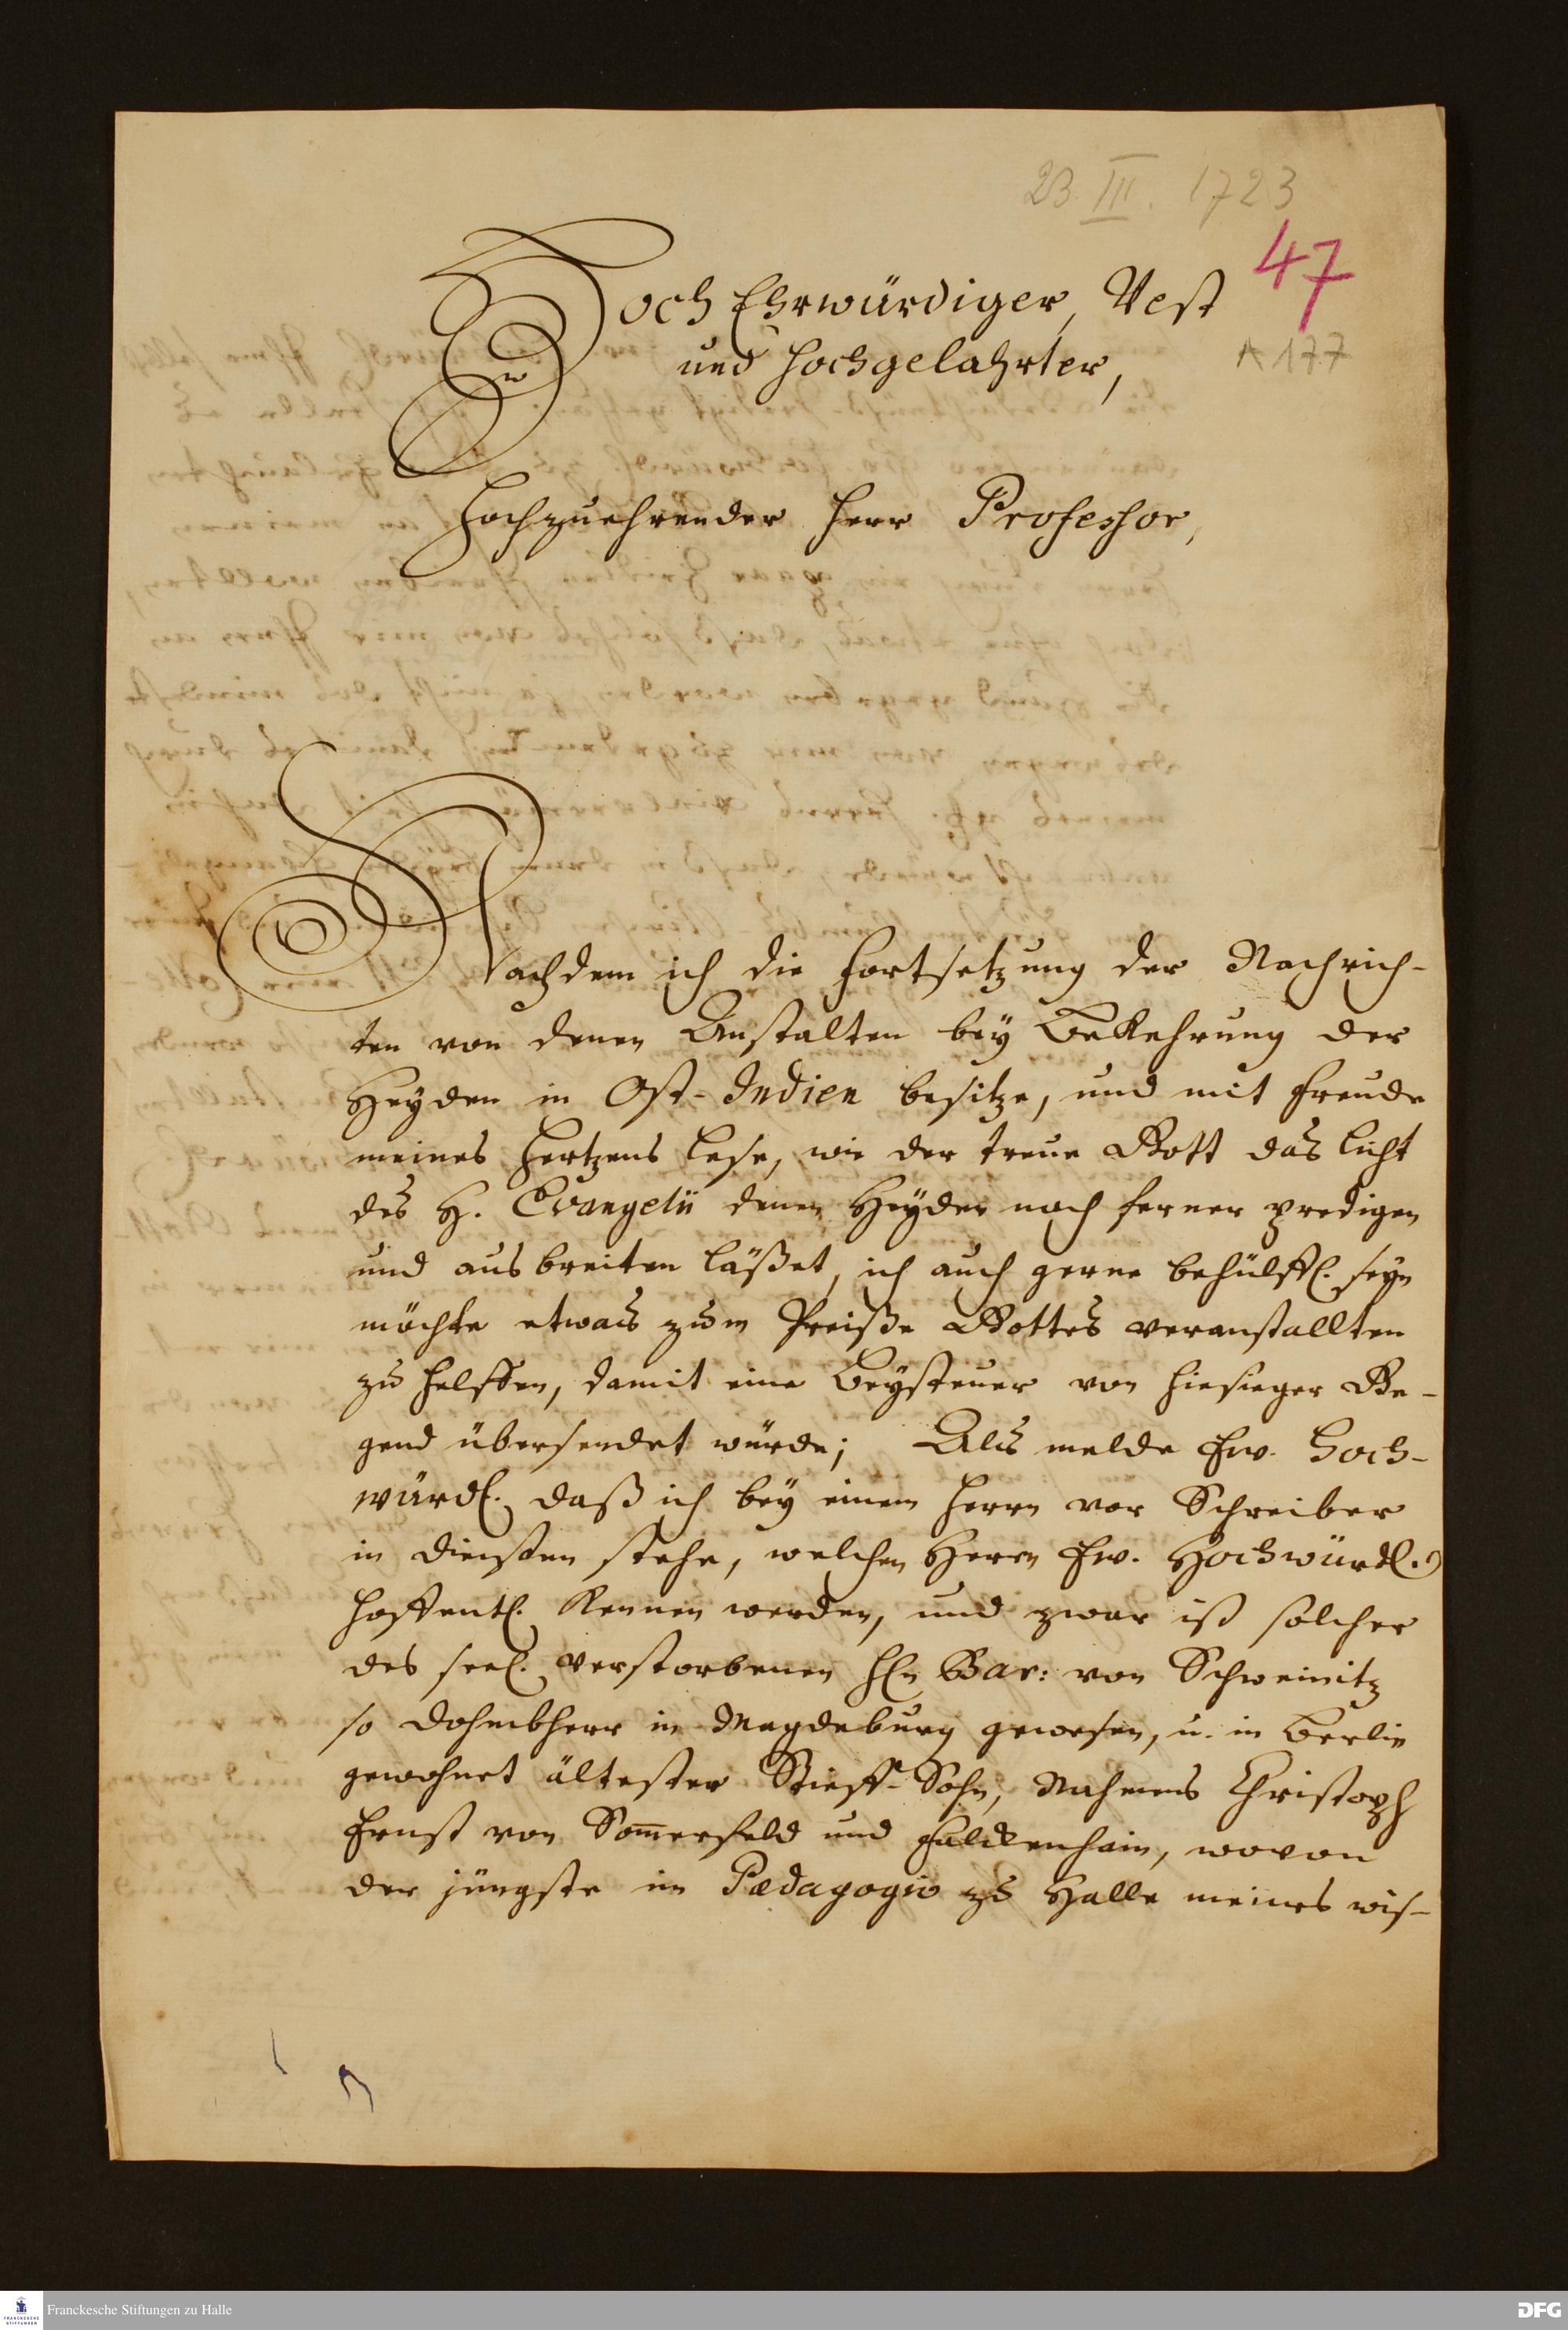 23. III. 1723
47
A 177
Hoch Ehrwürdiger, Vest
und Hochgelahrter,
Hochzuehrender Herr Professor,
Nachdem ich die Fortsetzung der Nachrich-
ten von denen Anstalten bey Bekehrung der
Heyden in Ost-Indien besitze, und mit Freude
meines Hertzens lese, wie der treue Gott das Licht
des H. Evangelii denen Heyden noch ferner predigen
und ausbreiten läßet, ich auch gerne behülffl. seyn
möchte etwas zum Preiße Gottes veranstallten
zu helffen, damit eine Beysteuer von hiesieger Ge-
gend übersendet würde; Als melde Ew. Hoch-
würdl. daß ich bey einem Herrn vor Schreiber
in Diensten stehe, welchen Herrn Ew. Hochwürdl.
hoffentl. kennen werden, und zwar ist solcher
des seel. verstorbenen Hln Bar: von Schweinitz
so Dohmbherr in Magdeburg gewesen, u. in Berlin
gewohnet ältester Stieff-Sohn, Nahmens Christoph
Ernst von Som̅erfeld und Falckenhain, wovon
der jüngste im Pædagogio zu Halle meines wis-
Franckesche Stiftungen zu Halle
FRANCKESCHE
STIFTUNGEN
DFG